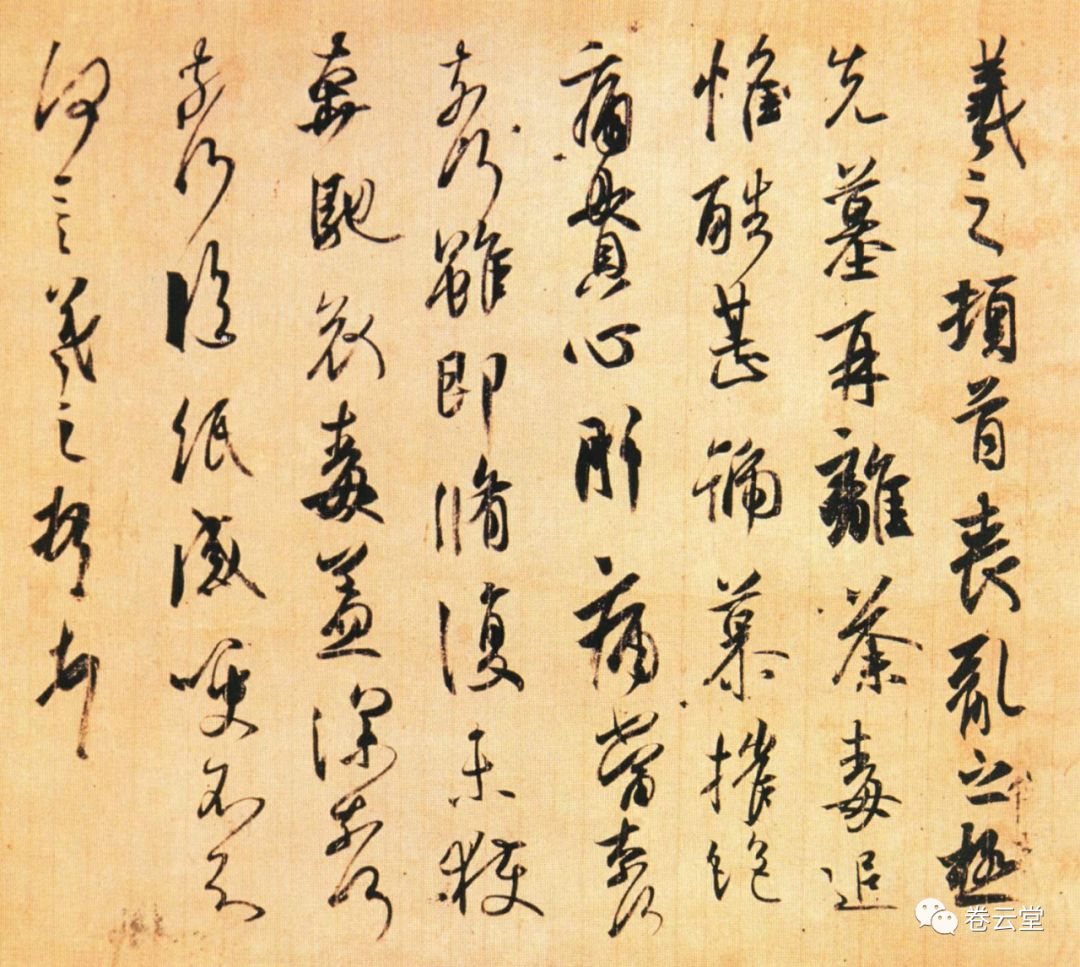 羲之頓首喪亂之極
先墓再離荼毒追
惟酷甚號慕摧絕
痛貫心肝痛當柰何
柰何雖即脩復未獲
奔馳哀毒益深柰何
柰何臨紙感哽不知
何言羲之頓首頓首
卷云堂